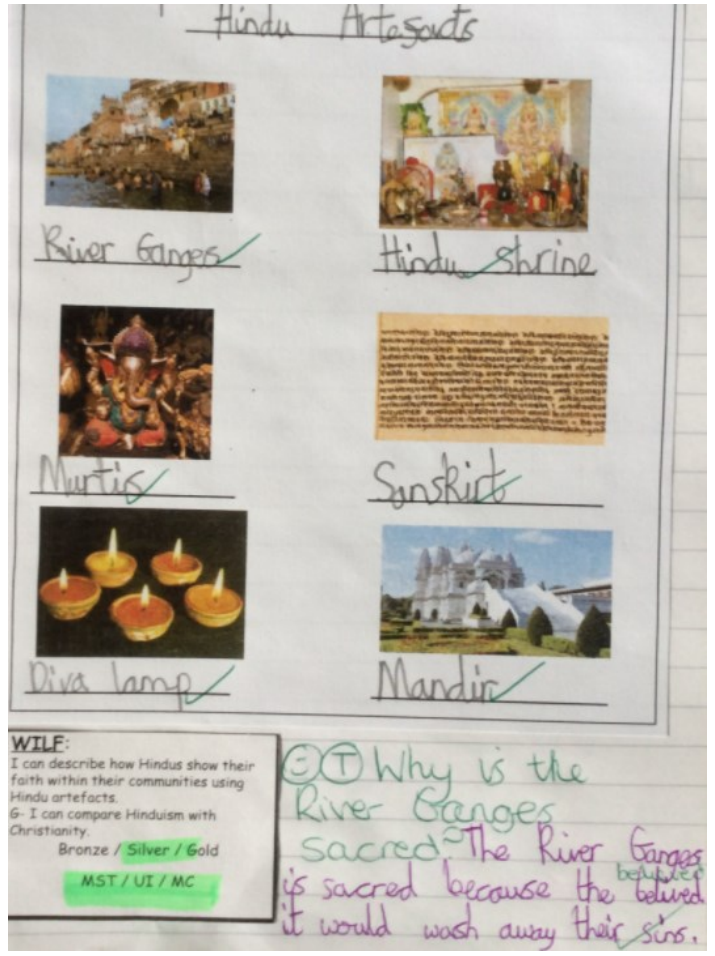 Hindu Artefacts
River Ganges
Hindu Shrine
Murtis
Sanskirt
Diva lamp
Mandir
WILF:
I can describe how Hindus show their
faith within their communities using
Hindu artefacts.
G- I can compare Hinduism with
Christianity.
Bronze / Silver / Gold
MST / UI / MC
T Why is the
River Ganges
sacred? The River Ganges
believed
is sacred because the belived
it would wash away their sins.